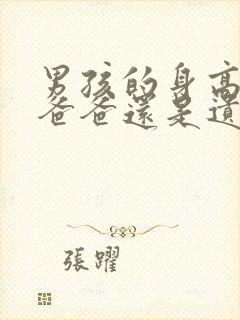 男孩的身高
爸爸還是遺
張躍